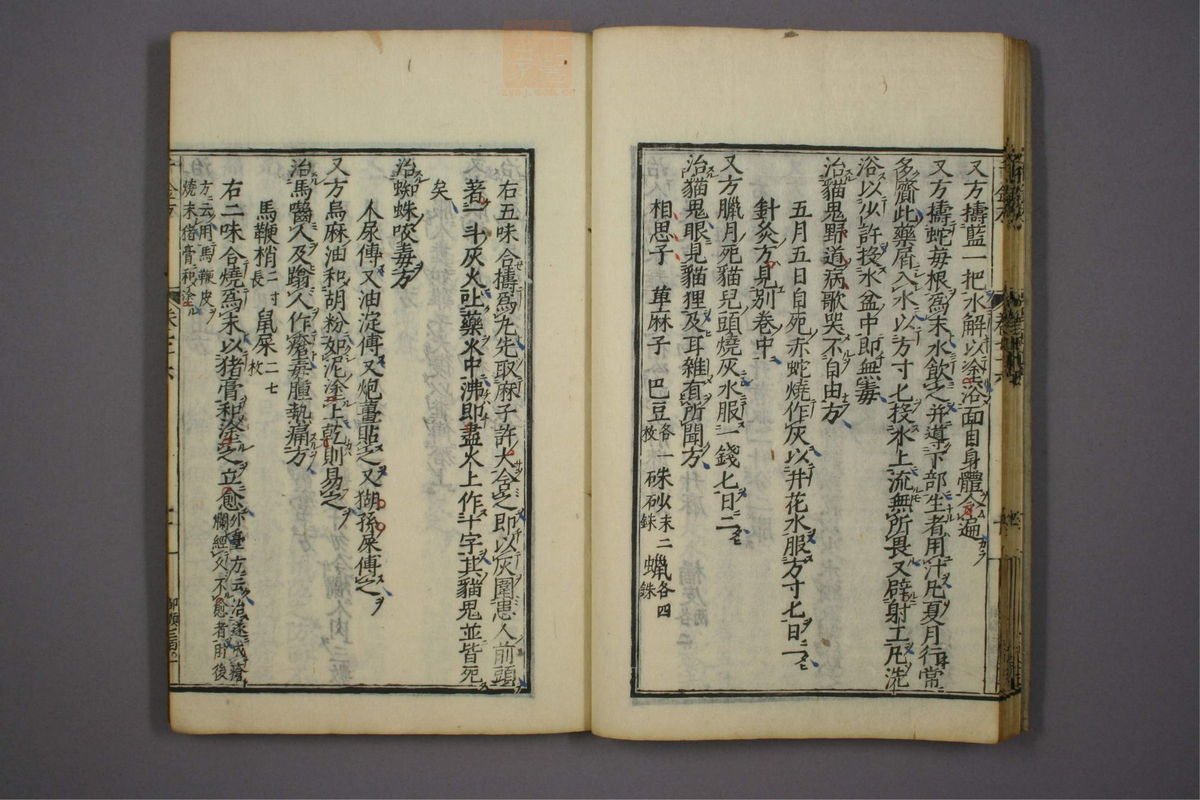 又方擣藍一把水解以塗浴面目身體令遍
又方擣蛇莓根為末水飲之并導下部生者用汁凡夏月行常
多齎此藥屑入水以方寸匕投水上流無所畏又辟射工凡洗
浴以少許投水盆中即無毒
治貓鬼野道病歌哭不自由方
五月五日自死赤蛇燒作灰以井花水服方寸匕日一
針灸方見別卷中
又方臘月死貓兒頭燒灰水服一錢匕日二
治貓鬼眼見貓狸及耳雜有所聞方
相思子 萆麻子 巴豆各一枚 硃砂末二銖 蠟各四銖
右五味合擣為丸先取麻子許大含之即以灰圍患人前頭
著一斗灰火吐藥火中沸即盡火上作十字其貓鬼並皆死
矣
治蜘蛛咬毒方
人尿傅又油淀傅又炮薑貼之又猢孫屎傅之
又方烏麻油和胡粉如泥塗上乾則易之
治馬嚙人及蹹人作瘡毒腫熱痛方
馬鞭梢長二寸 鼠屎二七枚
右二味合燒為末以猪膏和塗之立愈外臺方云治遂成瘡
爛經久不愈者用後
方云用馬鞭皮
燒末猪膏和塗
千金方
卷二十六